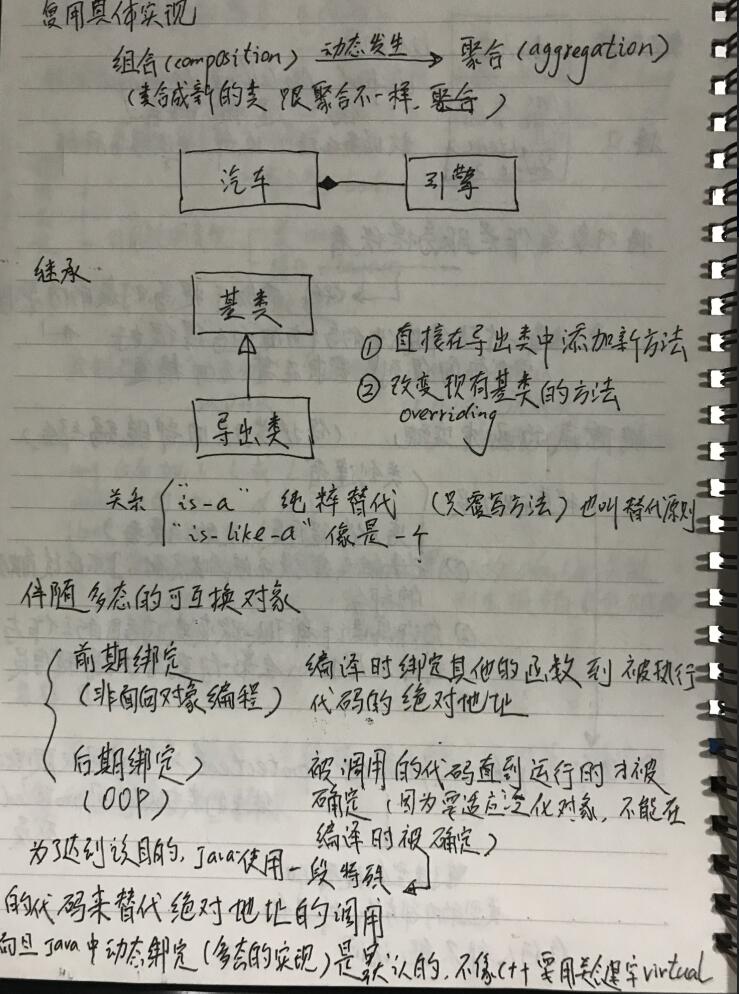 复用具体实现
组合(composition) 动态发生 聚合(aggregation)
(类合成新的类 跟聚合不一样, 聚合)
汽车 引擎
继承
基类
① 直接在导出类中添加新方法
② 改变现有基类的方法
overriding
导出类
关系 "is-a" 纯粹替代 (只覆写方法) 也叫替代原则
"is-like-a" 像是一个
伴随多态的可互换对象
前期绑定 编译时绑定其他的函数到被执行
(非面向对象编程) 代码的绝对地址
后期绑定 被调用的代码直到运行时才被
(OOP) 确定(因为要适应泛化对象, 不能在
编译时被确定)
为了达到该目的, Java使用一段特殊
的代码来替代绝对地址的调用
而且Java中动态绑定(多态的实现)是默认的, 不像C++要用关键字virtual